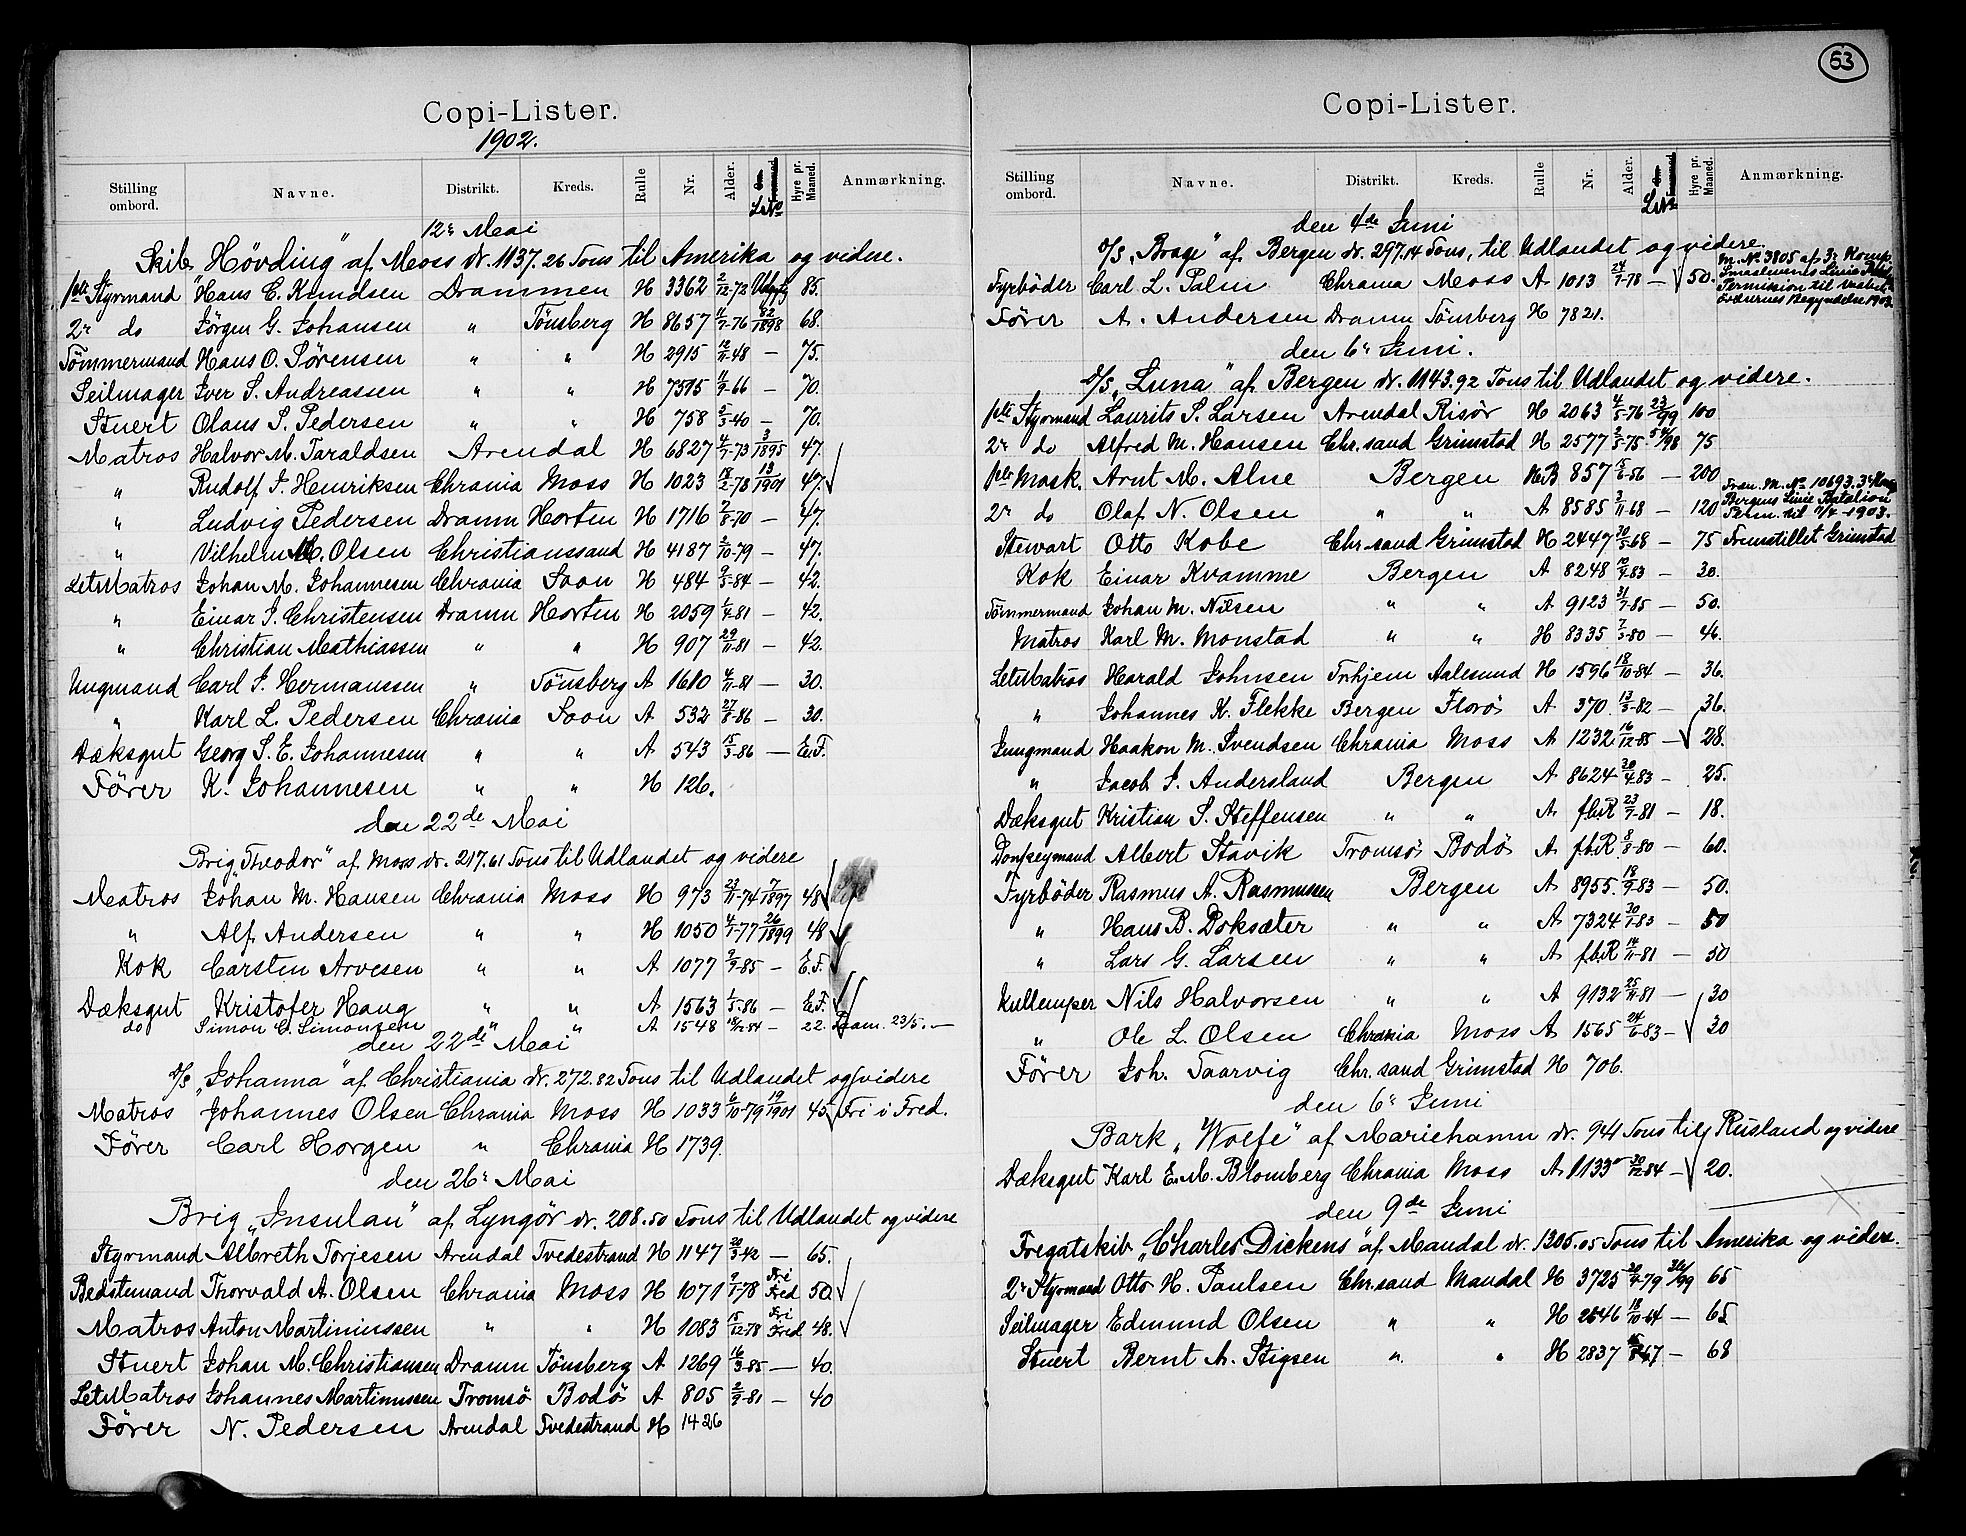 Copi-Lister.
1902.
Stilling ombord. Navne. Distrikt. Kreds. Rulle Nr. Alder. Hyre pr. Maaned. Anmærkning.
12te Mai
Skib "Hövding" af Moss dr. 1137.26 Tons til Amerika og videre.
1ste Styrmand Hans C. Knudsen Drammen H 3362 2/12-72 85.
2r do Jörgen G. Johansen " Tönsberg H 8657 11/7-76 82/1898 68.
Tömmermand Hans O. Sörensen " " H 2915 12/11-48 — 75.
Seilmager Iver S. Andreassen " " H 7595 11/9-66 — 70.
Stuert Olaus S. Pedersen " " H 758 3/3-40 — 70.
Matros Halvor M. Taraldsen Arendal H 6827 4/7-73 3/1895 47.
" Rudolf J. Henriksen Chrania Moss H 1023 18/2-78 13/1901 47.
" Ludvig Pedersen Dramn Horten H 1716 7/8-70 — 47.
" Vilhelm O. Olsen Christianssand H 4187 2/10-79 — 47.
LetMatros Johan M. Johannesen Chrania Soon H 484 9/5-84 — 42.
" Einar J. Christensen Dramn Horten H 2059 1/4-81 — 42.
" Christian Mathiassen " " H 907 29/11-81 — 42.
Ungmand Carl J. Hermanssen " Tönsberg A 1610 4/11-81 — 30.
" Karl L. Pedersen Chrania Soon A 532 27/8-86 — 30.
Dæksgut Georg S. E. Johannesen " " A 543 15/3-86 — E.F.
Förer K. Johannesen " " H 126.
den 22de Mai
Brig "Theodor" af Moss dr. 217.61 Tons til Udlandet og videre
Matros Johan M. Hansen Chrania Moss H 973 23/11-74 7/1897 48
" Alf Andersen " " H 1050 4/1-77 26/1899 48
Kok Carsten Arvesen " " A 1077 9/9-85 — E.F.
Dæksgut Kristofer Haug " " A 1563 1/5-86 — E.F.
do Simon C. Simonsen " " A 1548 18/12-84 — 22. 23/5. —
den 22de Mai
D/S "Johanna" af Christiania dr. 272.82 Tons til Udlandet og videre
Matros Johannes Olsen Chrania Moss H 1033 6/10-79 19/1901 45 Fri i Fred.
Förer Carl Horgen " Chrania H 1739.
den 26r Mai
Brig "Insulan" af Lyngör dr. 208.50 Tons til Udlandet og videre
Styrmand Albreth Torjesen Arendal Tvedestrand H 1147 20/3-42 — 65.
Bedstemand Thorvald A. Olsen Chrania Moss H 1071 7/1-78 Fri Fred 50.
Matros Anton Martiniussen " " H 1083 15/12-78 Fri Fred 48.
Stuert Johan M. Christiansen Dramn Tönsberg A 1269 16/3-85 — 40.
LetMatros Johannes Martinussen Tromsö Bodö A 805 2/9-81 — 40
Förer N. Pedersen Arendal Tvedestrand H 1426
53
Copi-Lister.
Stilling ombord. Navne. Distrikt. Kreds. Rulle Nr. Alder. Hyre pr. Maaned. Anmærkning.
den 4de Juni
D/S "Brage" af Bergen dr. 297.14 Tons, til Udlandet og videre.
Fyrböder Carl L. Palm Chrania Moss A 1013 24/9-78 — 50. M. No 3805 af 3r Komp. Smaalenenes Linie Permission til
Förer A. Andersen Dramn Tönsberg H 7821.
den 6r Juni.
D/S "Luna" af Bergen dr. 1143.92 Tons til Udlandet og videre.
1ste Styrmand Laurits S. Larsen Arendal Risör H 2063 4/5-76 23/99 100
2r do Alfred M. Hansen Chr.sand Grimstad H 2577 2/5-75 54/98 75
1ste Mask. Arnt M. Alne Bergen H B 857 15/6-56 — 200
2r do Olaf N. Olsen " " A 8585 3/11-68 — 120 M. No 10693. 3r Bergens Linie Batalion Perm. til 1903.
Stewart Otto Kobe Chr.sand Grimstad H 2447 30/5-68 — 75 Fremstillet Grimstad
Kok Einar Kvamme Bergen A 8248 10/9-83 — 30.
Tömmermand Johan M. Nilsen " " A 9123 31/7-85 — 50.
Matros Karl M. Monstad " " H 8335 7/3-80 — 46.
LetMatros Harald Johnsen Trhjem Aalesund H 1596 18/10-84 — 36.
" Johannes K. Flekke Bergen Florö A 370 13/3-82 — 36.
Jungmand Haakon M. Svendsen Chrania Moss A 1232 16/12-85 — 28.
" Jacob J. Andersland Bergen A 8624 30/4-83 — 25.
Dæksgut Kristian S. Steffensen " " A f.b.R 23/7-81 — 18.
Donkeymand Albert Stavik Tromsö Bodö A f.b.R 8/8-80 — 60.
Fyrböder Rasmus A. Rasmussen Bergen A 8955 18/9-83 — 50.
" Hans B. Doksæter " " A 7324 30/1-83 — 50
" Lars G. Larsen " " A f.b.R 14/11-81 — 50
Kullemper Nils Halvorsen " " A 9132 25/11-81 — 30
" Ole L. Olsen Chrania Moss A 1565 24/6-83 — 30
Förer Joh. Taarvig Chr.sand Grimstad H 706.
den 6r Juni
Bark "Wolfe" af Mariehamn dr. 941 Tons til Rusland og videre
Dæksgut Karl E. M. Blomberg Chrania Moss A 1133 30/12-84 — 20.
den 9de Juni
Fregatskib "Charles Dickens" af Mandal dr. 1306.05 Tons til Amerika og videre.
2r Styrmand Otto H. Paulsen Chr.sand Mandal H 3725 20/9-79 36/99 65
Seilmager Edmund Olsen " " H 2646 18/10-64 — 65
Stuert Bernt A. Stigsen " " H 2837 — 68